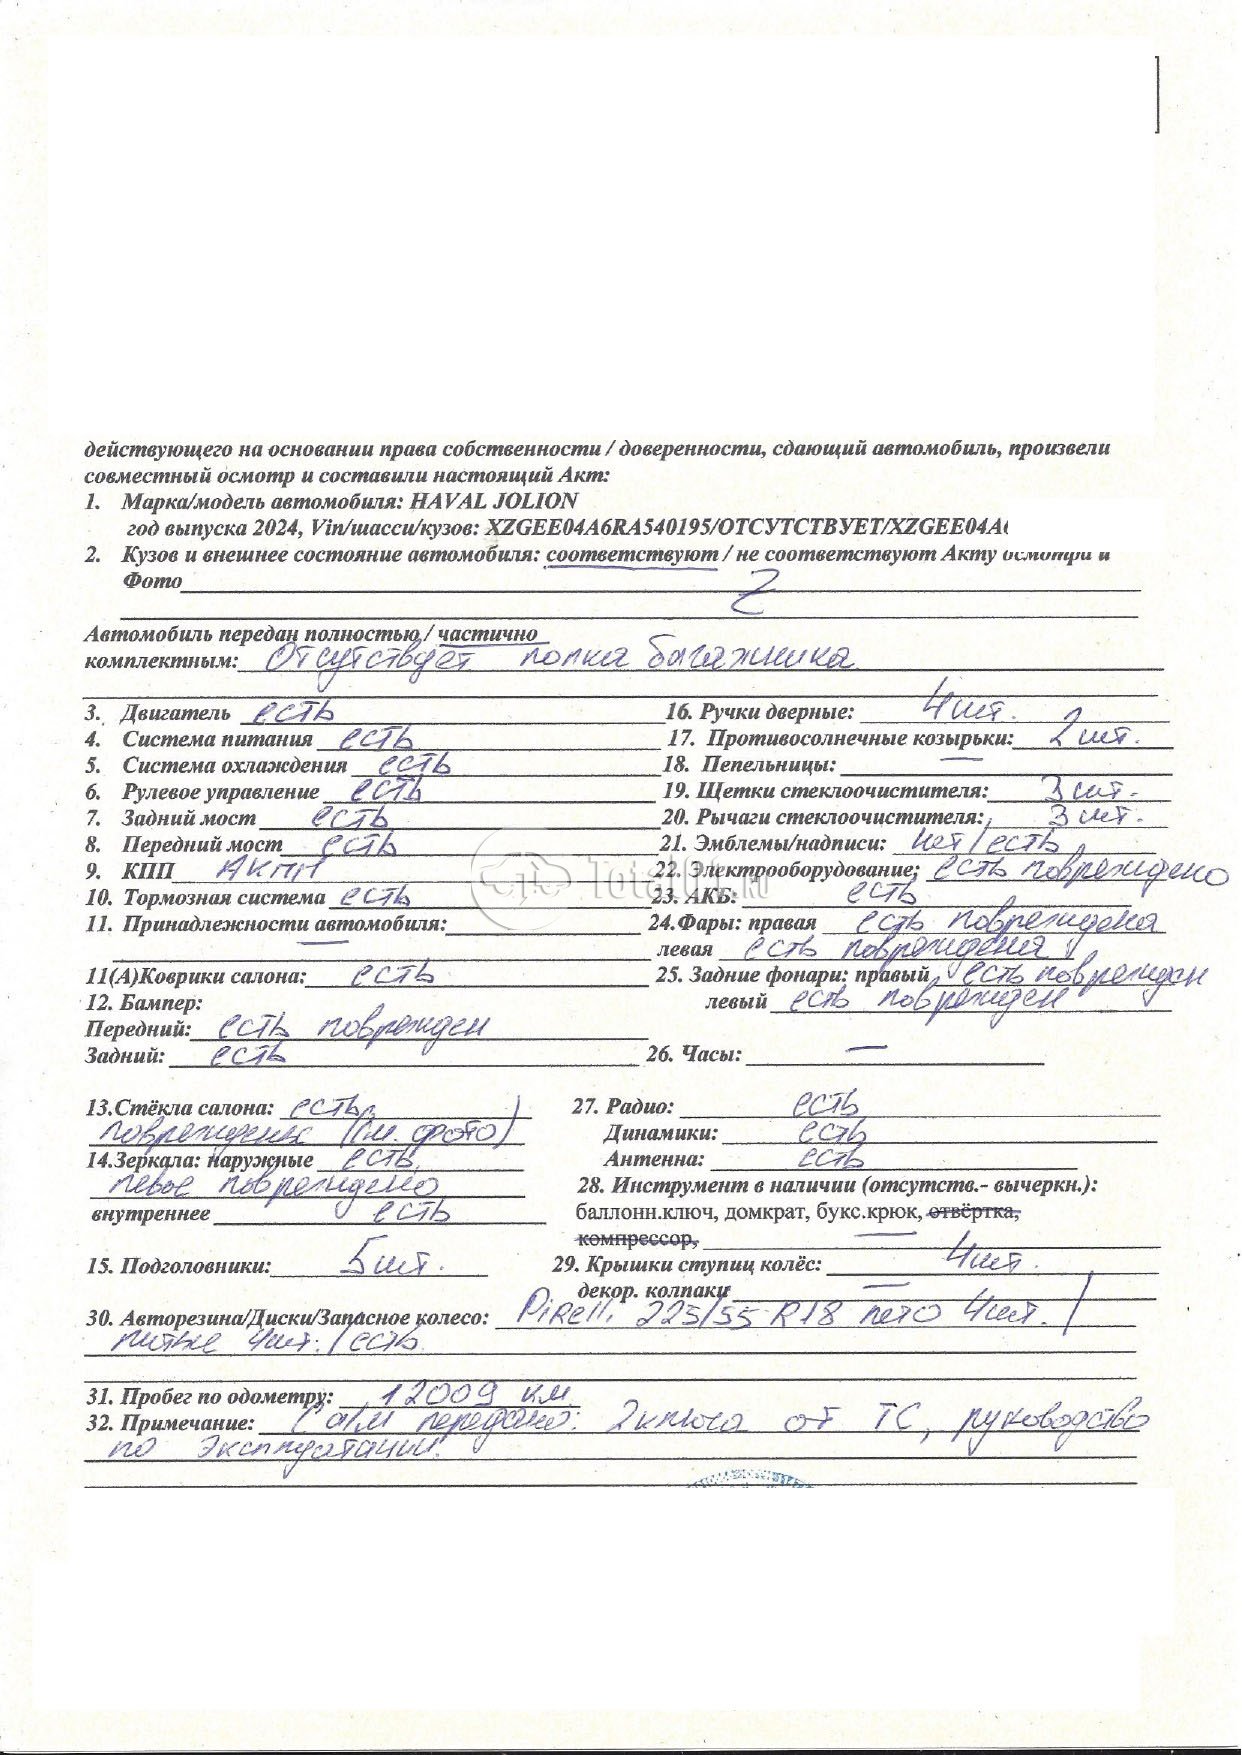 действующего на основании права собственности / доверенности, сдающий автомобиль, произвели
совместный осмотр и составили настоящий Акт:
1. Марка/модель автомобиля: HAVAL JOLION
год выпуска 2024, Vin/шасси/кузов: XZGEE04A6RA540195/ОТСУТСТВУЕТ/XZGEE04A
2. Кузов и внешнее состояние автомобиля: соответствуют / не соответствуют Акту осмотра и
Фото
Автомобиль передан полностью / частично
комплектным: Отсутствует полка багажника
3. Двигатель есть
16. Ручки дверные: 4шт.
4. Система питания есть
17. Противосолнечные козырьки: 2 шт.
5. Система охлаждения есть
18. Пепельницы: —
6. Рулевое управление есть
19. Щетки стеклоочистителя: 3 шт.
7. Задний мост есть
20. Рычаги стеклоочистителя: 3 шт.
8. Передний мост есть
21. Эмблемы/надписи: нет / есть
9. КПП АКПП
22. Электрооборудование: есть повреждено
Total01.ru
10. Тормозная система есть
23. АКБ: есть
11. Принадлежности автомобиля: —
24.Фары: правая есть повреждена
левая есть повреждена
11(А)Коврики салона: есть
25. Задние фонари: правый есть поврежден
12. Бампер:
левый есть поврежден
Передний: есть поврежден
Задний: есть
26. Часы: —
13.Стёкла салона: есть
повреждены (см. фото)
27. Радио: есть
Динамики: есть
14.Зеркала: наружные есть
левое повреждено
Антенна: есть
28. Инструмент в наличии (отсутств.- вычеркн.):
внутреннее есть
баллонн.ключ, домкрат, букс.крюк, отвёртка,
компрессор, —
15. Подголовники: 5шт.
29. Крышки ступиц колёс: 4шт.
декор. колпаки —
30. Авторезина/Диски/Запасное колесо: Pirelli 225/55 R18 лето 4шт. /
литые 4шт. / есть
31. Пробег по одометру: 12009 км
32. Примечание: С а/м передано: 2 ключа от ТС, руководство
по эксплуатации.